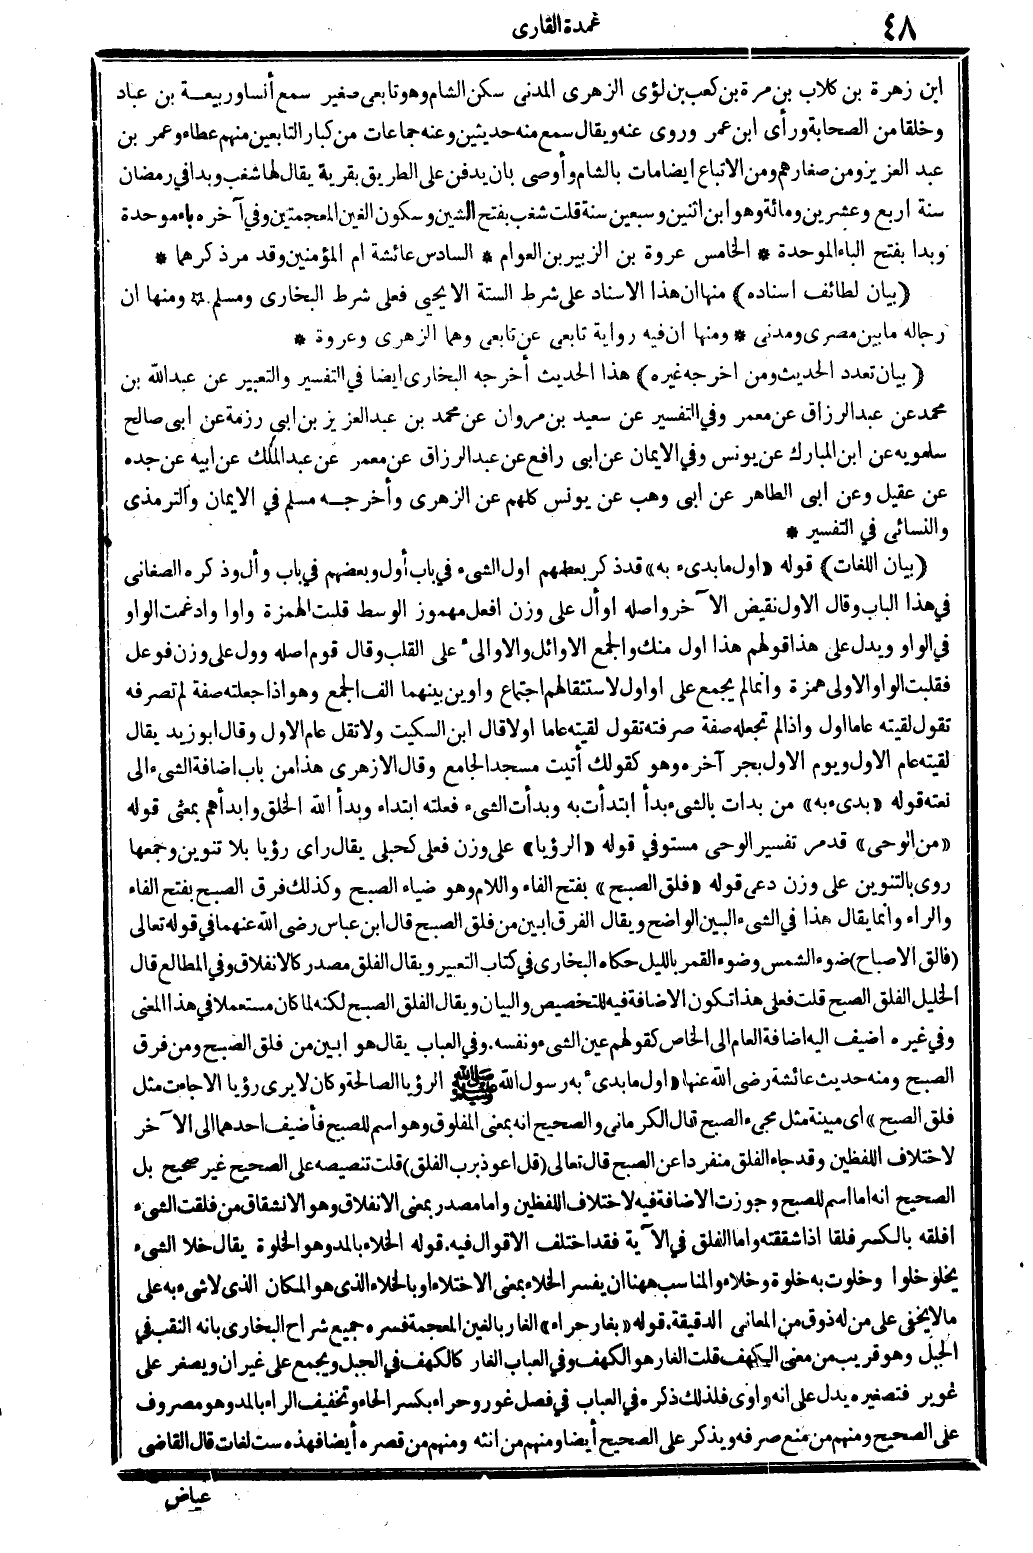 ٤٨
عمدة القارى
ابن زهرة بن كلاب بن مرة بن كعب بن لؤى الزهرى المدنى سكن الشام وهو تابعى صغير سمع أنسا وربيعة بن عباد
وخلقا من الصحابة ورأى ابن عمر وروى عنه ويقال سمع منه حديثين وعنه جماعات من كبار التابعين منهم عطاء وعمر بن
عبد العزيز ومن صغارهم ومن الاتباع ايضا مات بالشام وأوصى بان يدفن على الطريق بقرية يقال لها شغب وبدا في رمضان
سنة اربع وعشرين ومائة وهو ابن اثنين وسبعين سنة قلت شغب بفتح الشين وسكون الغين المعجمتين وفي آخره باء موحدة
وبدا بفتح الباء الموحدة * الخامس عروة بن الزبير بن العوام * السادس عائشة ام المؤمنين وقد مر ذكرهما *
(بيان لطائف اسناده) منها ان هذا الاسناد على شرط الستة الا يحيى فعلى شرط البخارى ومسلم * ومنها ان
رجاله ما بين مصرى ومدنى * ومنها ان فيه رواية تابعى عن تابعى وهما الزهرى وعروة *
(بيان تعدد الحديث ومن اخرجه غيره) هذا الحديث أخرجه البخارى ايضا في التفسير والتعبير عن عبدالله بن
محمد عن عبدالرزاق عن معمر وفي التفسير عن سعيد بن مروان عن محمد بن عبدالعزيز بن ابى رزمة عن ابى صالح
سلمويه عن ابن المبارك عن يونس وفي الايمان عن ابى رافع عن عبدالرزاق عن معمر عن عبدالملك عن ابيه عن جده
عن عقيل وعن ابى الطاهر عن ابى وهب عن يونس كلهم عن الزهرى وأخرجه مسلم في الايمان والترمذى
والنسائى في التفسير *
(بيان اللغات) قوله «اول ما بدىء به» قد ذكر بعضهم اول الشىء في باب أول وبعضهم في باب وأل وذكره الصغانى
في هذا الباب وقال الاول نقيض الآخر واصله اوأل على وزن افعل مهموز الوسط قلبت الهمزة واوا وادغمت الواو
في الواو ويدل على هذا قولهم هذا اول منك والجمع الاوائل والاوالىء على القلب وقال قوم اصله وول على وزن فوعل
فقلبت الواو الاولى همزة وانما لم يجمع على اواول لاستثقالهم اجتماع واوين بينهما الف الجمع وهو اذا جعلته صفة لم تصرفه
تقول لقيته عاما اول واذا لم تجعله صفة صرفته تقول لقيته عاما اولا قال ابن السكيت ولا تقل عام الاول وقال ابو زيد يقال
لقيته عام الاول ويوم الاول بجر آخره وهو كقولك أتيت مسجد الجامع وقال الازهرى هذا من باب اضافة الشىء الى
نعته قوله «بدىء به» من بدات بالشىء بدأ ابتدأت به وبدأت الشىء فعلته ابتداء وبدأ الله الخلق وابدأهم بمعنى قوله
«من الوحى» قد مر تفسير الوحى مستوفي قوله «الرؤيا» على وزن فعلى كحبلى يقال راى رؤيا بلا تنوين وجمعها
روى بالتنوين على وزن دعى قوله «فلق الصبح» بفتح الفاء واللام وهو ضياء الصبح وكذلك فرق الصبح بفتح الفاء
والراء وانما يقال هذا في الشىء البين الواضح ويقال الفرق ابين من فلق الصبح قال ابن عباس رضى الله عنهما في قوله تعالى
(فالق الاصباح) ضوء الشمس وضوء القمر بالليل حكاه البخارى في كتاب التعبير ويقال الفلق مصدر كالانفلاق وفي المطالع قال
الخليل الفلق الصبح قلت فعلى هذا تكون الاضافة فيه للتخصيص والبيان ويقال الفلق الصبح لكنه لما كان مستعملا في هذا المعنى
وفي غيره اضيف اليه اضافة العام الى الخاص كقولهم عين الشىء ونفسه. وفي العباب يقال هو ابين من فلق الصبح ومن فرق
الصبح ومنه حديث عائشة رضى الله عنها «اول ما بدىء به رسول الله ﷺ الرؤيا الصالحة وكان لا يرى رؤيا الا جاءت مثل
فلق الصبح» اى مبينة مثل مجىء الصبح قال الكرمانى والصحيح انه بمعنى المفلوق وهو اسم للصبح فأضيف احدهما الى الآخر
لاختلاف اللفظين وقد جاء الفلق منفردا عن الصبح قال تعالى (قل اعوذ برب الفلق) قلت تنصيصه على الصحيح غير صحيح بل
الصحيح انه اما اسم للصبح وجوزت الاضافة فيه لاختلاف اللفظين واما مصدر بمعنى الانفلاق وهو الانشقاق من فلقت الشىء
افلقه بالكسر فلقا اذا شققته واما الفلق في الآية فقد اختلف الاقوال فيه. قوله الخلاء بالمد وهو الخلوة يقال خلا الشىء
يخلو خلوا وخلوت به خلوة وخلاء والمناسب ههنا ان يفسر الخلاء بمعنى الاختلاء او بالخلاء الذى هو المكان الذى لا شىء به على
ما لا يخفى على من له ذوق من المعانى الدقيقة. قوله «بغار حراء» الغار بالغين المعجمة فسره جميع شراح البخارى بانه النقب في
الجبل وهو قريب من معنى الكهف قلت الغار هو الكهف وفي العباب الغار كالكهف في الجبل ويجمع على غيران ويصغر على
غوير فتصغيره يدل على انه واوى فلذلك ذكره في العباب في فصل غور وحراء بكسر الحاء وتخفيف الراء بالمد وهو مصروف
على الصحيح ومنهم من منع صرفه ويذكر على الصحيح أيضا ومنهم من انثه ومنهم من قصره أيضا فهذه ست لغات قال القاضى
عياض